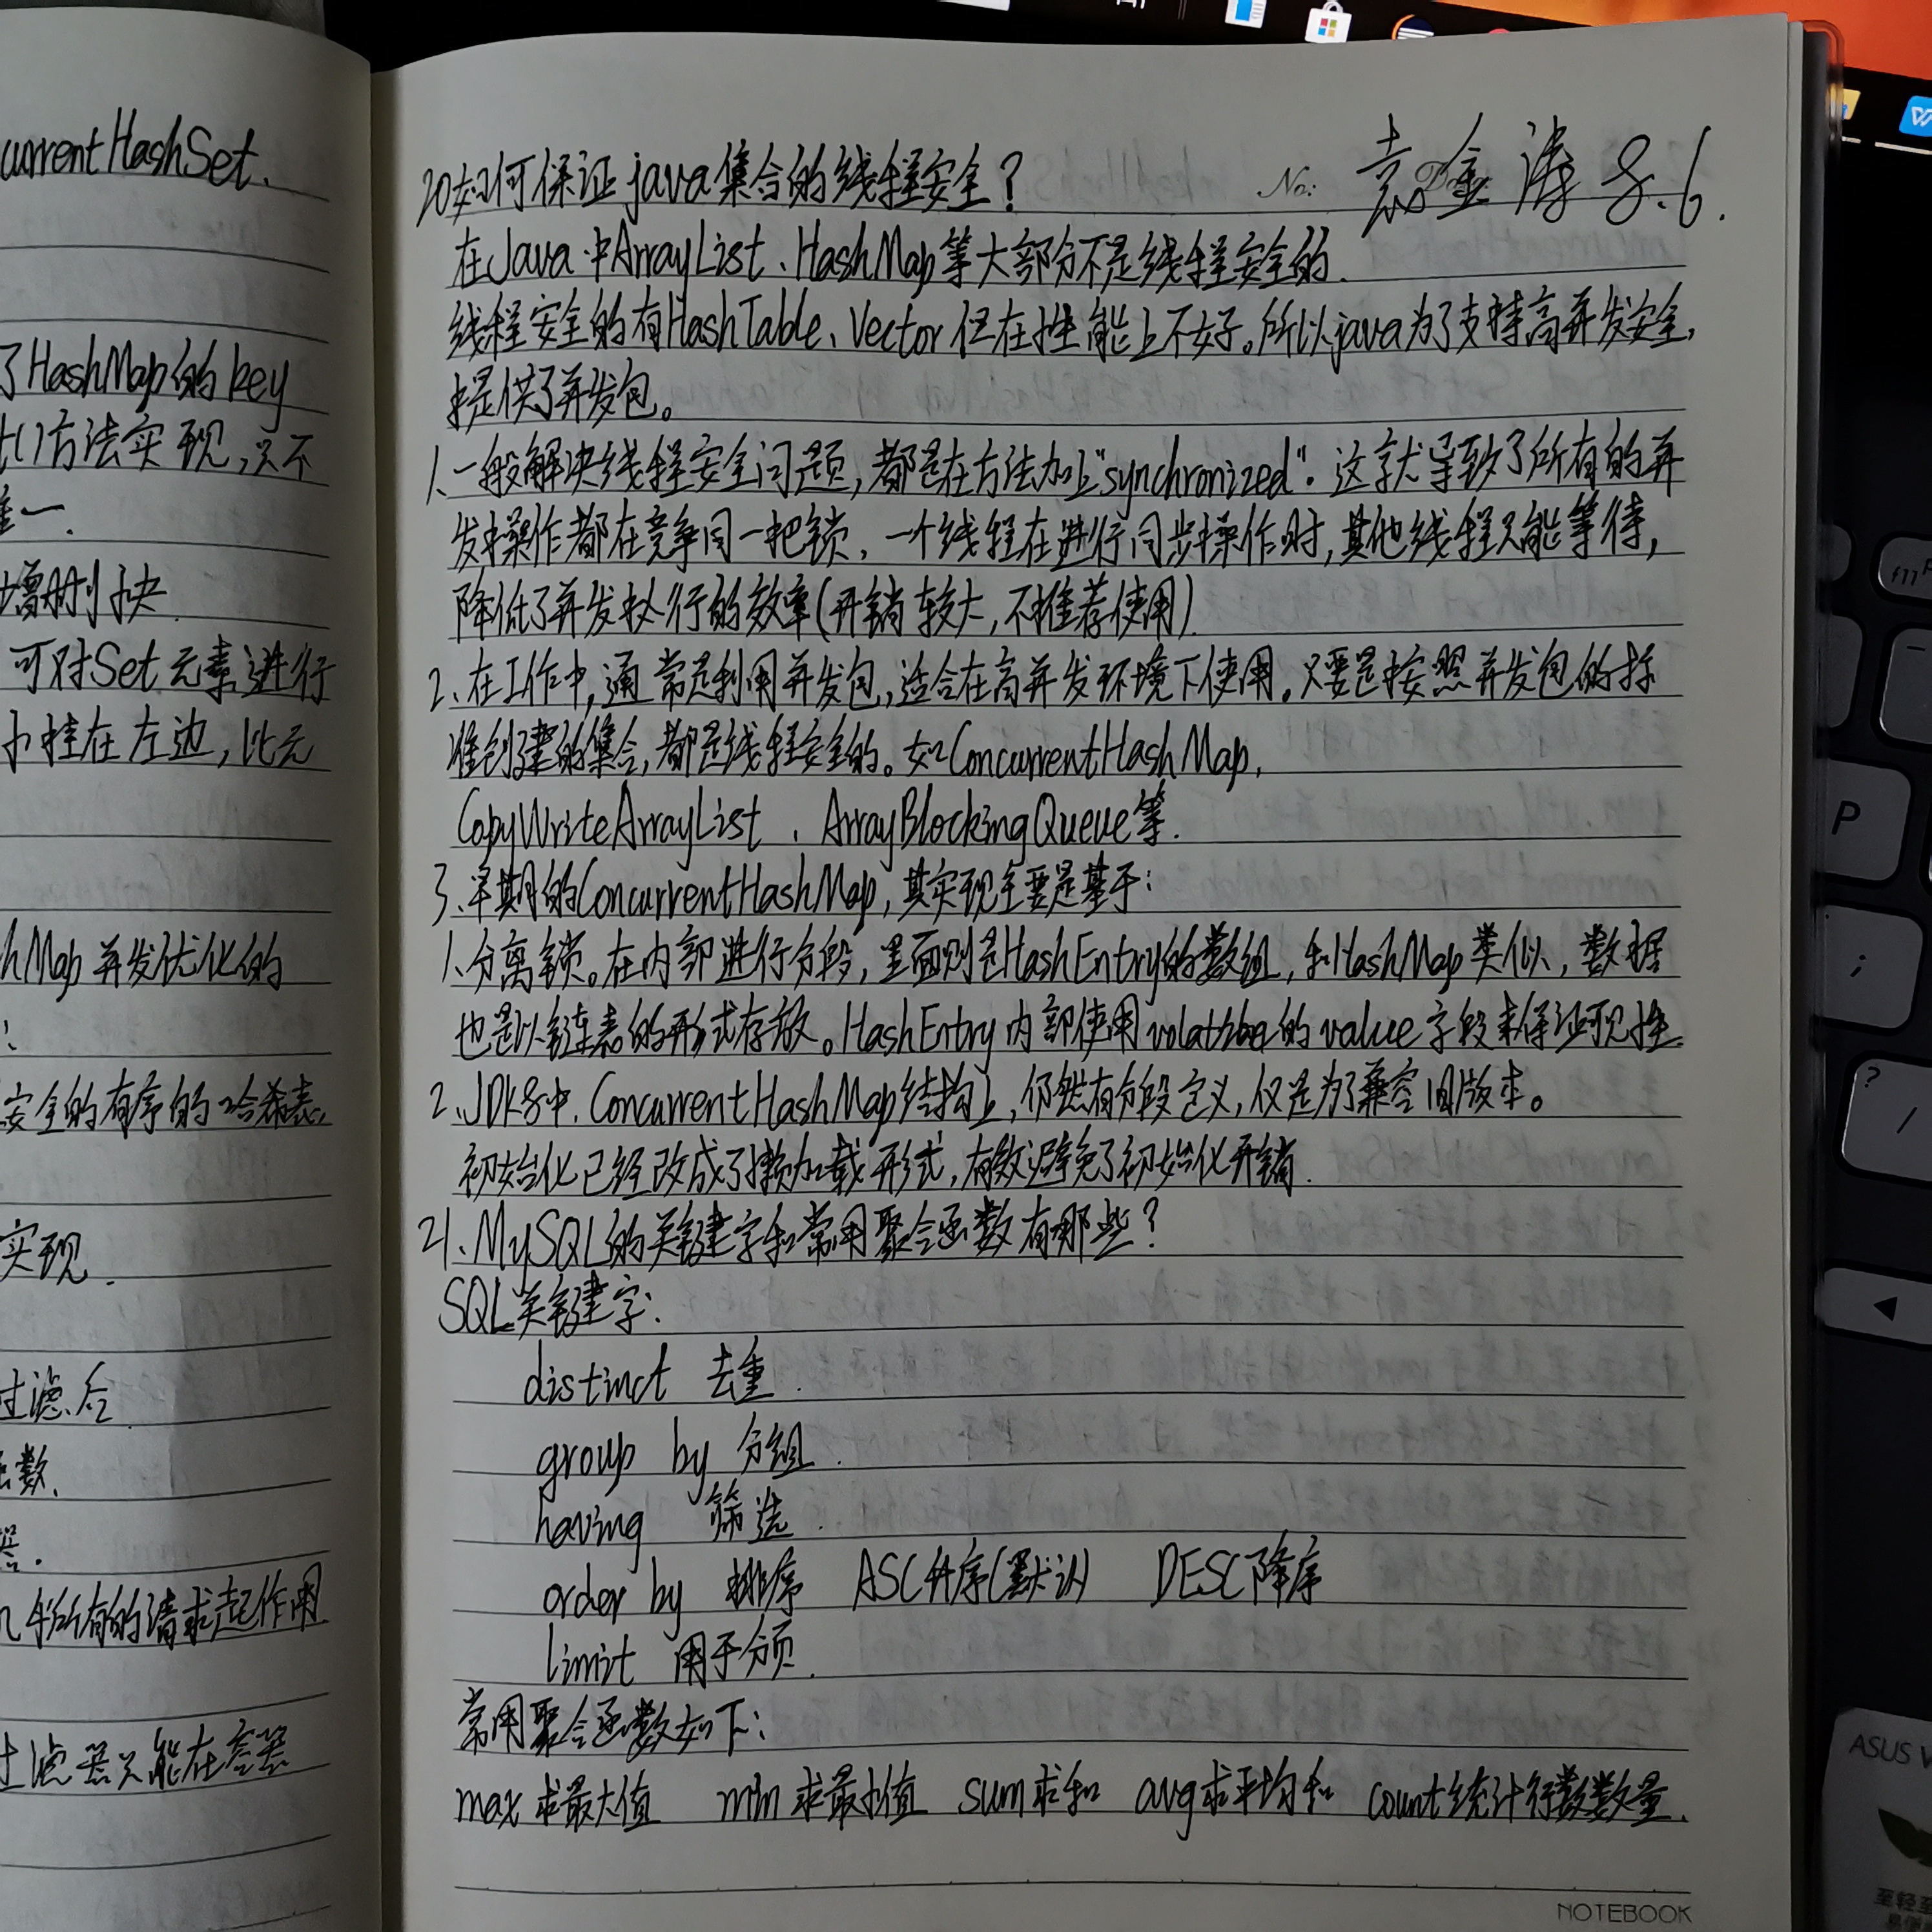 currentHashSet.
了HashMap的key
t()方法实现,只不
唯一.
增删快
可对Set元素进行
小挂在左边,比元
hMap并发优化的
:
安全的有序的哈希表,
实现.
过滤后
函数.
器.
几乎所有的请求起作用
过滤器只能在容器
No:
袁金涛 8.6.
20如何保证java集合的线程安全?
在Java中ArrayList、HashMap等大部分不是线程安全的.
线程安全的有HashTable、Vector但在性能上不好。所以java为了支持高并发安全,
提供了并发包。
1、一般解决线程安全问题,都是在方法加上"synchronized"。这就导致了所有的并
发操作都在竞争同一把锁,一个线程在进行同步操作时,其他线程只能等待,
降低了并发执行的效率(开销较大,不推荐使用)
2、在工作中,通常是利用并发包,适合在高并发环境下使用。只要是按照并发包的标
准创建的集合,都是线程安全的。如ConcurrentHashMap,
CopyWriteArrayList、ArrayBlockingQueue等.
3、早期的ConcurrentHashMap,其实现主要是基于:
1、分离锁。在内部进行分段,里面则是HashEntry的数组,和HashMap类似,数据
也是以链表的形式存放。HashEntry内部使用的value字段来保证可见性.
2、JDK8中.ConcurrentHashMap结构上,仍然有分段定义,仅是为了兼容旧版本。
初始化已经改成了懒加载形式,有效避免了初始化开销.
21、MySQL的关键字和常用聚合函数有那些?
SQL关键字:
distinct 去重.
group by 分组.
having 筛选.
order by 排序 ASC升序(默认) DESC降序
limit 用于分页.
常用聚合函数如下:
max求最大值 min求最小值 sum求和 avg求平均和 count统计行数数量.
NOTEBOOK
f11
P
;
?
/
ASUS V
至轻至